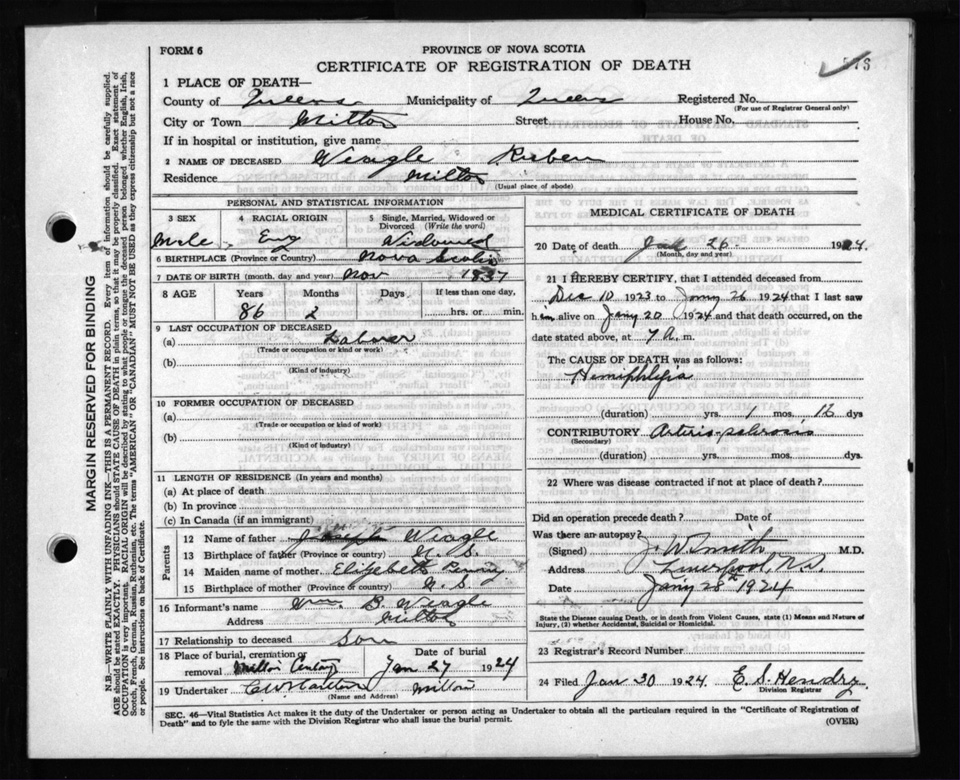 FORM 6
PROVINCE OF NOVA SCOTIA
CERTIFICATE OF REGISTRATION OF DEATH
1 PLACE OF DEATH—
County of Queens Municipality of Queens Registered No.
(For use of Registrar General only)
City or Town Milton Street House No.
If in hospital or institution, give name
2 NAME OF DECEASED Weagle Reben
Residence Milton
(Usual place of abode)
PERSONAL AND STATISTICAL INFORMATION
3 SEX 4 RACIAL ORIGIN 5 Single, Married, Widowed or Divorced (Write the word)
Male Eng Widowed
6 BIRTHPLACE (Province or Country) Nova Scotia
7 DATE OF BIRTH (month, day and year) Nov 1837
8 AGE Years Months Days If less than one day,
86 2 hrs. or min.
9 LAST OCCUPATION OF DECEASED
(a) Laborer
(Trade or occupation or kind or work)
(b)
(Kind of industry)
10 FORMER OCCUPATION OF DECEASED
(a)
(Trade or occupation or kind of work)
(b)
(Kind of industry)
11 LENGTH OF RESIDENCE (In years and months)
(a) At place of death
(b) In province
(c) In Canada (if an immigrant)
Parents
12 Name of father Joseph Weagle
13 Birthplace of father (Province or country) N. S.
14 Maiden name of mother Elizebeth Penny
15 Birthplace of mother (Province or country) N. S
16 Informant's name Wm. D. Weagle
Address Milton
17 Relationship to deceased Son
18 Place of burial, cremation or removal Milton Date of burial Jan 27 1924
19 Undertaker Milton
(Name and Address)
MEDICAL CERTIFICATE OF DEATH
20 Date of death Jan 26 1924.
(Month, day and year)
21 I HEREBY CERTIFY, that I attended deceased from
Dec 10 1923 to Jany 26 1924 that I last saw
him alive on Jany 20 1924 and that death occurred, on the
date stated above, at 7 A. m.
The CAUSE OF DEATH was as follows:
Hemiphlegia
(duration) yrs. 1 mos. 12 dys
CONTRIBUTORY
(Secondary)
(duration) yrs. mos. dys.
22 Where was disease contracted if not at place of death?
Did an operation precede death? Date of
Was there an autopsy?
(Signed) J. W. Smith M.D.
Address Liverpool, N.S
Date Jany 28th 1924
State the Disease causing Death, or in death from Violent Causes, state (1) Means and Nature of Injury, (2) whether Accidental, Suicidal or Homicidal.
23 Registrar's Record Number
24 Filed Jan 30 1924. E. S. Hendry
Division Registrar
SEC. 46—Vital Statistics Act makes it the duty of the Undertaker or person acting as Undertaker to obtain all the particulars required in the "Certificate of Registration of
Death" and to fyle the same with the Division Registrar who shall issue the burial permit.
(OVER)
MARGIN RESERVED FOR BINDING
N.B.—WRITE PLAINLY WITH UNFADING INK—THIS IS A PERMANENT RECORD. Every item of information should be carefully supplied.
AGE should be stated EXACTLY. PHYSICIANS should STATE CAUSE OF DEATH in plain terms, so that it may be properly classified. Exact statement of
OCCUPATION is very important. RACIAL ORIGIN will be described by stating to what people or tongue the deceased person belonged whether English, Irish,
Scotch, French, German, Russian, Ruthenian, etc. The terms "AMERICAN" OR "CANADIAN" MUST NOT BE USED as they express citizenship but not a race
or people. See instructions on back of Certificate.